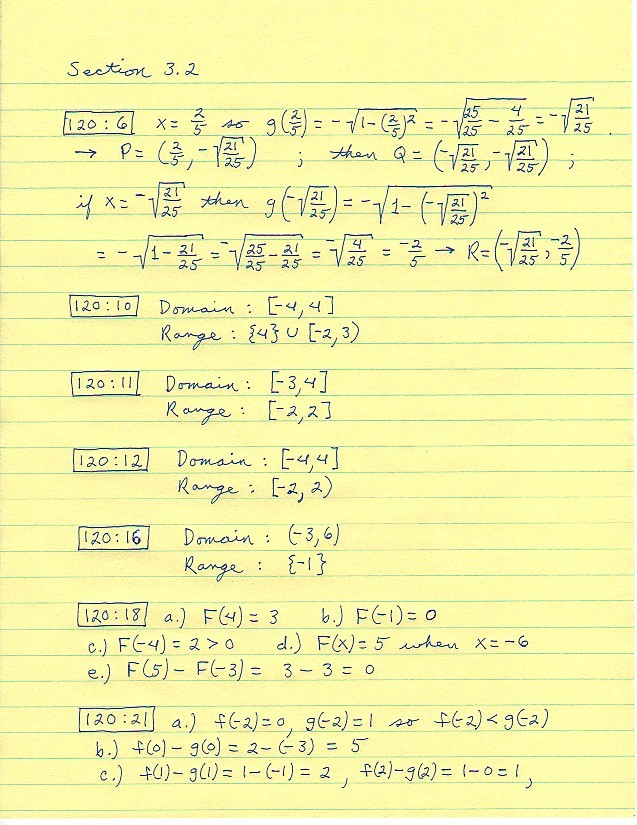 Section 3.2
120:6 x = 2/5 so g(2/5) = -√(1-(2/5)²) = -√(25/25 - 4/25) = -√(21/25).
→ P = (2/5, -√(21/25)) ; then Q = (-√(21/25), -√(21/25)) ;
if x = -√(21/25) then g(-√(21/25)) = -√(1-(-√(21/25))²)
= -√(1-21/25) = -√(25/25-21/25) = -√(4/25) = -2/5 → R=(-√(21/25), -2/5)
120:10 Domain : [-4,4]
Range : {4} ∪ [-2,3)
120:11 Domain : [-3,4]
Range : [-2,2]
120:12 Domain : [-4,4]
Range : [-2,2)
120:16 Domain : (-3,6)
Range : {-1}
120:18 a.) F(4) = 3 b.) F(-1) = 0
c.) F(-4) = 2 > 0 d.) F(x) = 5 when x = -6
e.) F(5) - F(-3) = 3 - 3 = 0
120:21 a.) f(-2)=0, g(-2)=1 so f(-2) < g(-2)
b.) f(0) - g(0) = 2-(-3) = 5
c.) f(1)-g(1) = 1-(-1) = 2 , f(2)-g(2) = 1-0 = 1,